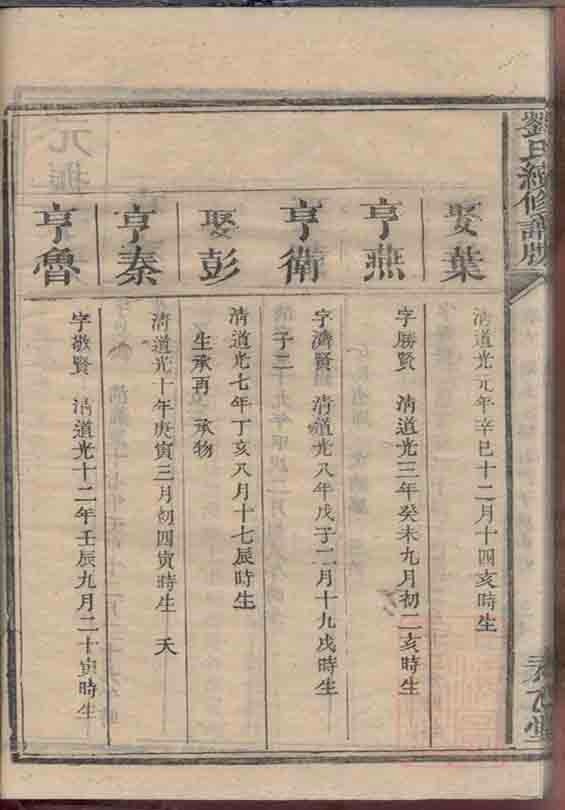 劉氏續修譜牒
娶葉
清道光元年辛巳十二月十四亥時生
亨燕
字勝賢 清道光三年癸未九月初二亥時生
亨衛
字濟賢 清道光八年戊子二月十九戌時生
子二
娶彭
清道光七年丁亥八月十七辰時生
生承再 承物
亨秦
清道光十年庚寅三月初四寅時生 夭
亨魯
字敬賢 清道光十二年壬辰九月二十寅時生